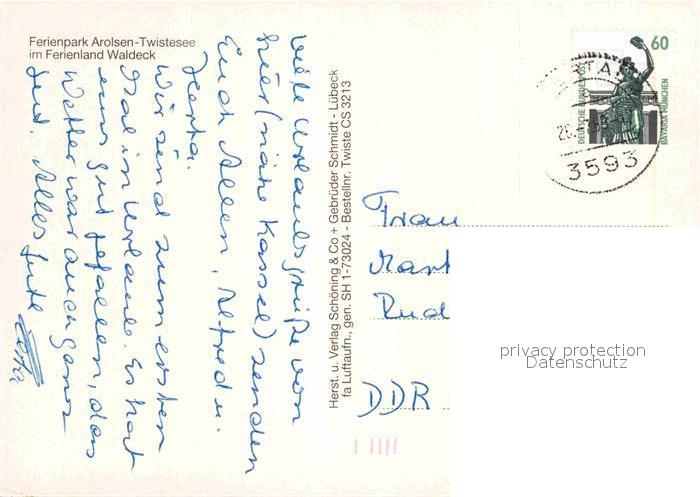 Ferienpark Arolsen-Twistesee
im Ferienland Waldeck
Viele Urlaubsgrüße von
hier (nähe Kassel) senden
Euch Allen, Alfred u.
Herta.
Wir sind zum ersten
Mal im Urlaub. Es hat
uns gut gefallen, das
Wetter war auch ganz
gut. Alles Gute
Herta
Herst. u. Verlag Schöning & Co + Gebrüder Schmidt - Lübeck
fa Luftaufn., gen. SH 1-73024 - Bestellnr. Twiste CS 3213
60
DEUTSCHE BUNDESPOST
BAVARIA MÜNCHEN
3593
Frau
Mart
Rud
DDR
privacy protection
Datenschutz